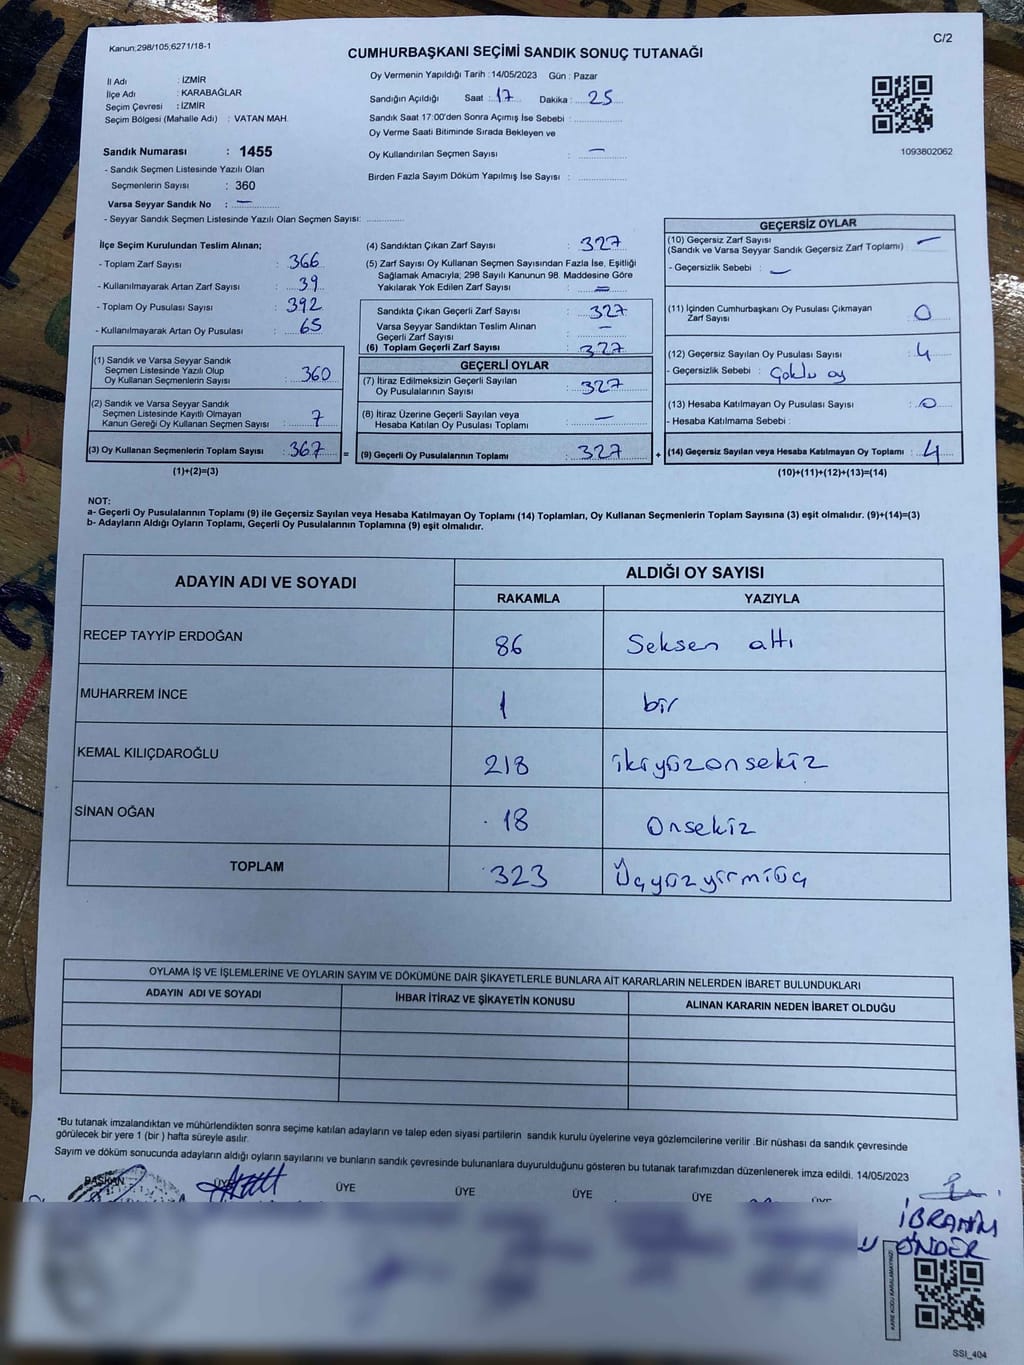 Kanun;298/105,6271/18-1
C/2
CUMHURBAŞKANI SEÇİMİ SANDIK SONUÇ TUTANAĞI
İl Adı : İZMİR
İlçe Adı : KARABAĞLAR
Seçim Çevresi : İZMİR
Seçim Bölgesi (Mahalle Adı) : VATAN MAH.
Sandık Numarası : 1455
- Sandık Seçmen Listesinde Yazılı Olan
Seçmenlerin Sayısı : 360
Varsa Seyyar Sandık No : —
- Seyyar Sandık Seçmen Listesinde Yazılı Olan Seçmen Sayısı:
Oy Vermenin Yapıldığı Tarih : 14/05/2023 Gün : Pazar
Sandığın Açıldığı Saat : 17 Dakika : 25
Sandık Saat 17:00'den Sonra Açımış İse Sebebi :
Oy Verme Saati Bitiminde Sırada Bekleyen ve
Oy Kullandırılan Seçmen Sayısı : —
Birden Fazla Sayım Döküm Yapılmış İse Sayısı :
1093802062
İlçe Seçim Kurulundan Teslim Alınan;
- Toplam Zarf Sayısı : 366
- Kullanılmayarak Artan Zarf Sayısı : 39
- Toplam Oy Pusulası Sayısı : 392
- Kullanılmayarak Artan Oy Pusulası : 65
(1) Sandık ve Varsa Seyyar Sandık
Seçmen Listesinde Yazılı Olup
Oy Kullanan Seçmenlerin Sayısı : 360
(2) Sandık ve Varsa Seyyar Sandık
Seçmen Listesinde Kayıtlı Olmayan
Kanun Gereği Oy Kullanan Seçmen Sayısı : 7
(3) Oy Kullanan Seçmenlerin Toplam Sayısı : 367 =
(1)+(2)=(3)
(4) Sandıktan Çıkan Zarf Sayısı : 327
(5) Zarf Sayısı Oy Kullanan Seçmen Sayısından Fazla İse, Eşitliği
Sağlamak Amacıyla; 298 Sayılı Kanunun 98. Maddesine Göre
Yakılarak Yok Edilen Zarf Sayısı : =
Sandıkta Çıkan Geçerli Zarf Sayısı : 327
Varsa Seyyar Sandıktan Teslim Alınan
Geçerli Zarf Sayısı : —
(6) Toplam Geçerli Zarf Sayısı : 327
GEÇERLİ OYLAR
(7) İtiraz Edilmeksizin Geçerli Sayılan
Oy Pusulalarının Sayısı : 327
(8) İtiraz Üzerine Geçerli Sayılan veya
Hesaba Katılan Oy Pusulası Toplamı : —
(9) Geçerli Oy Pusulalarının Toplamı : 327 +
GEÇERSİZ OYLAR
(10) Geçersiz Zarf Sayısı : —
(Sandık ve Varsa Seyyar Sandık Geçersiz Zarf Toplamı)
- Geçersizlik Sebebi : —
(11) İçinden Cumhurbaşkanı Oy Pusulası Çıkmayan
Zarf Sayısı : 0
(12) Geçersiz Sayılan Oy Pusulası Sayısı : 4
- Geçersizlik Sebebi : Çoklu oy
(13) Hesaba Katılmayan Oy Pusulası Sayısı : 0
- Hesaba Katılmama Sebebi :
(14) Geçersiz Sayılan veya Hesaba Katılmayan Oy Toplamı : 4
(10)+(11)+(12)+(13)=(14)
NOT:
a- Geçerli Oy Pusulalarının Toplamı (9) ile Geçersiz Sayılan veya Hesaba Katılmayan Oy Toplamı (14) Toplamları, Oy Kullanan Seçmenlerin Toplam Sayısına (3) eşit olmalıdır. (9)+(14)=(3)
b- Adayların Aldığı Oyların Toplamı, Geçerli Oy Pusulalarının Toplamına (9) eşit olmalıdır.
ADAYIN ADI VE SOYADI ALDIĞI OY SAYISI
RAKAMLA YAZIYLA
RECEP TAYYİP ERDOĞAN 86 Seksen altı
MUHARREM İNCE 1 bir
KEMAL KILIÇDAROĞLU 218 ikiyüzonsekiz
SİNAN OĞAN 18 Onsekiz
TOPLAM 323 Üçyüzyirmiüç
OYLAMA İŞ VE İŞLEMLERİNE VE OYLARIN SAYIM VE DÖKÜMÜNE DAİR ŞİKAYETLERLE BUNLARA AİT KARARLARIN NELERDEN İBARET BULUNDUKLARI
ADAYIN ADI VE SOYADI İHBAR İTİRAZ VE ŞİKAYETİN KONUSU ALINAN KARARIN NEDEN İBARET OLDUĞU
*Bu tutanak imzalandıktan ve mühürlendikten sonra seçime katılan adayların ve talep eden siyasi partilerin sandık kurulu üyelerine veya gözlemcilerine verilir .Bir nüshası da sandık çevresinde
görülecek bir yere 1 (bir ) hafta süreyle asılır.
Sayım ve döküm sonucunda adayların aldığı oyların sayılarını ve bunların sandık çevresinde bulunanlara duyurulduğunu gösteren bu tutanak tarafımızdan düzenlenerek imza edildi. 14/05/2023
BAŞKAN ÜYE ÜYE ÜYE ÜYE ÜYE ÜYE
İBRAHİM
ÖNDER
KARE KODU KARALAMAYINIZ!
SSI_404